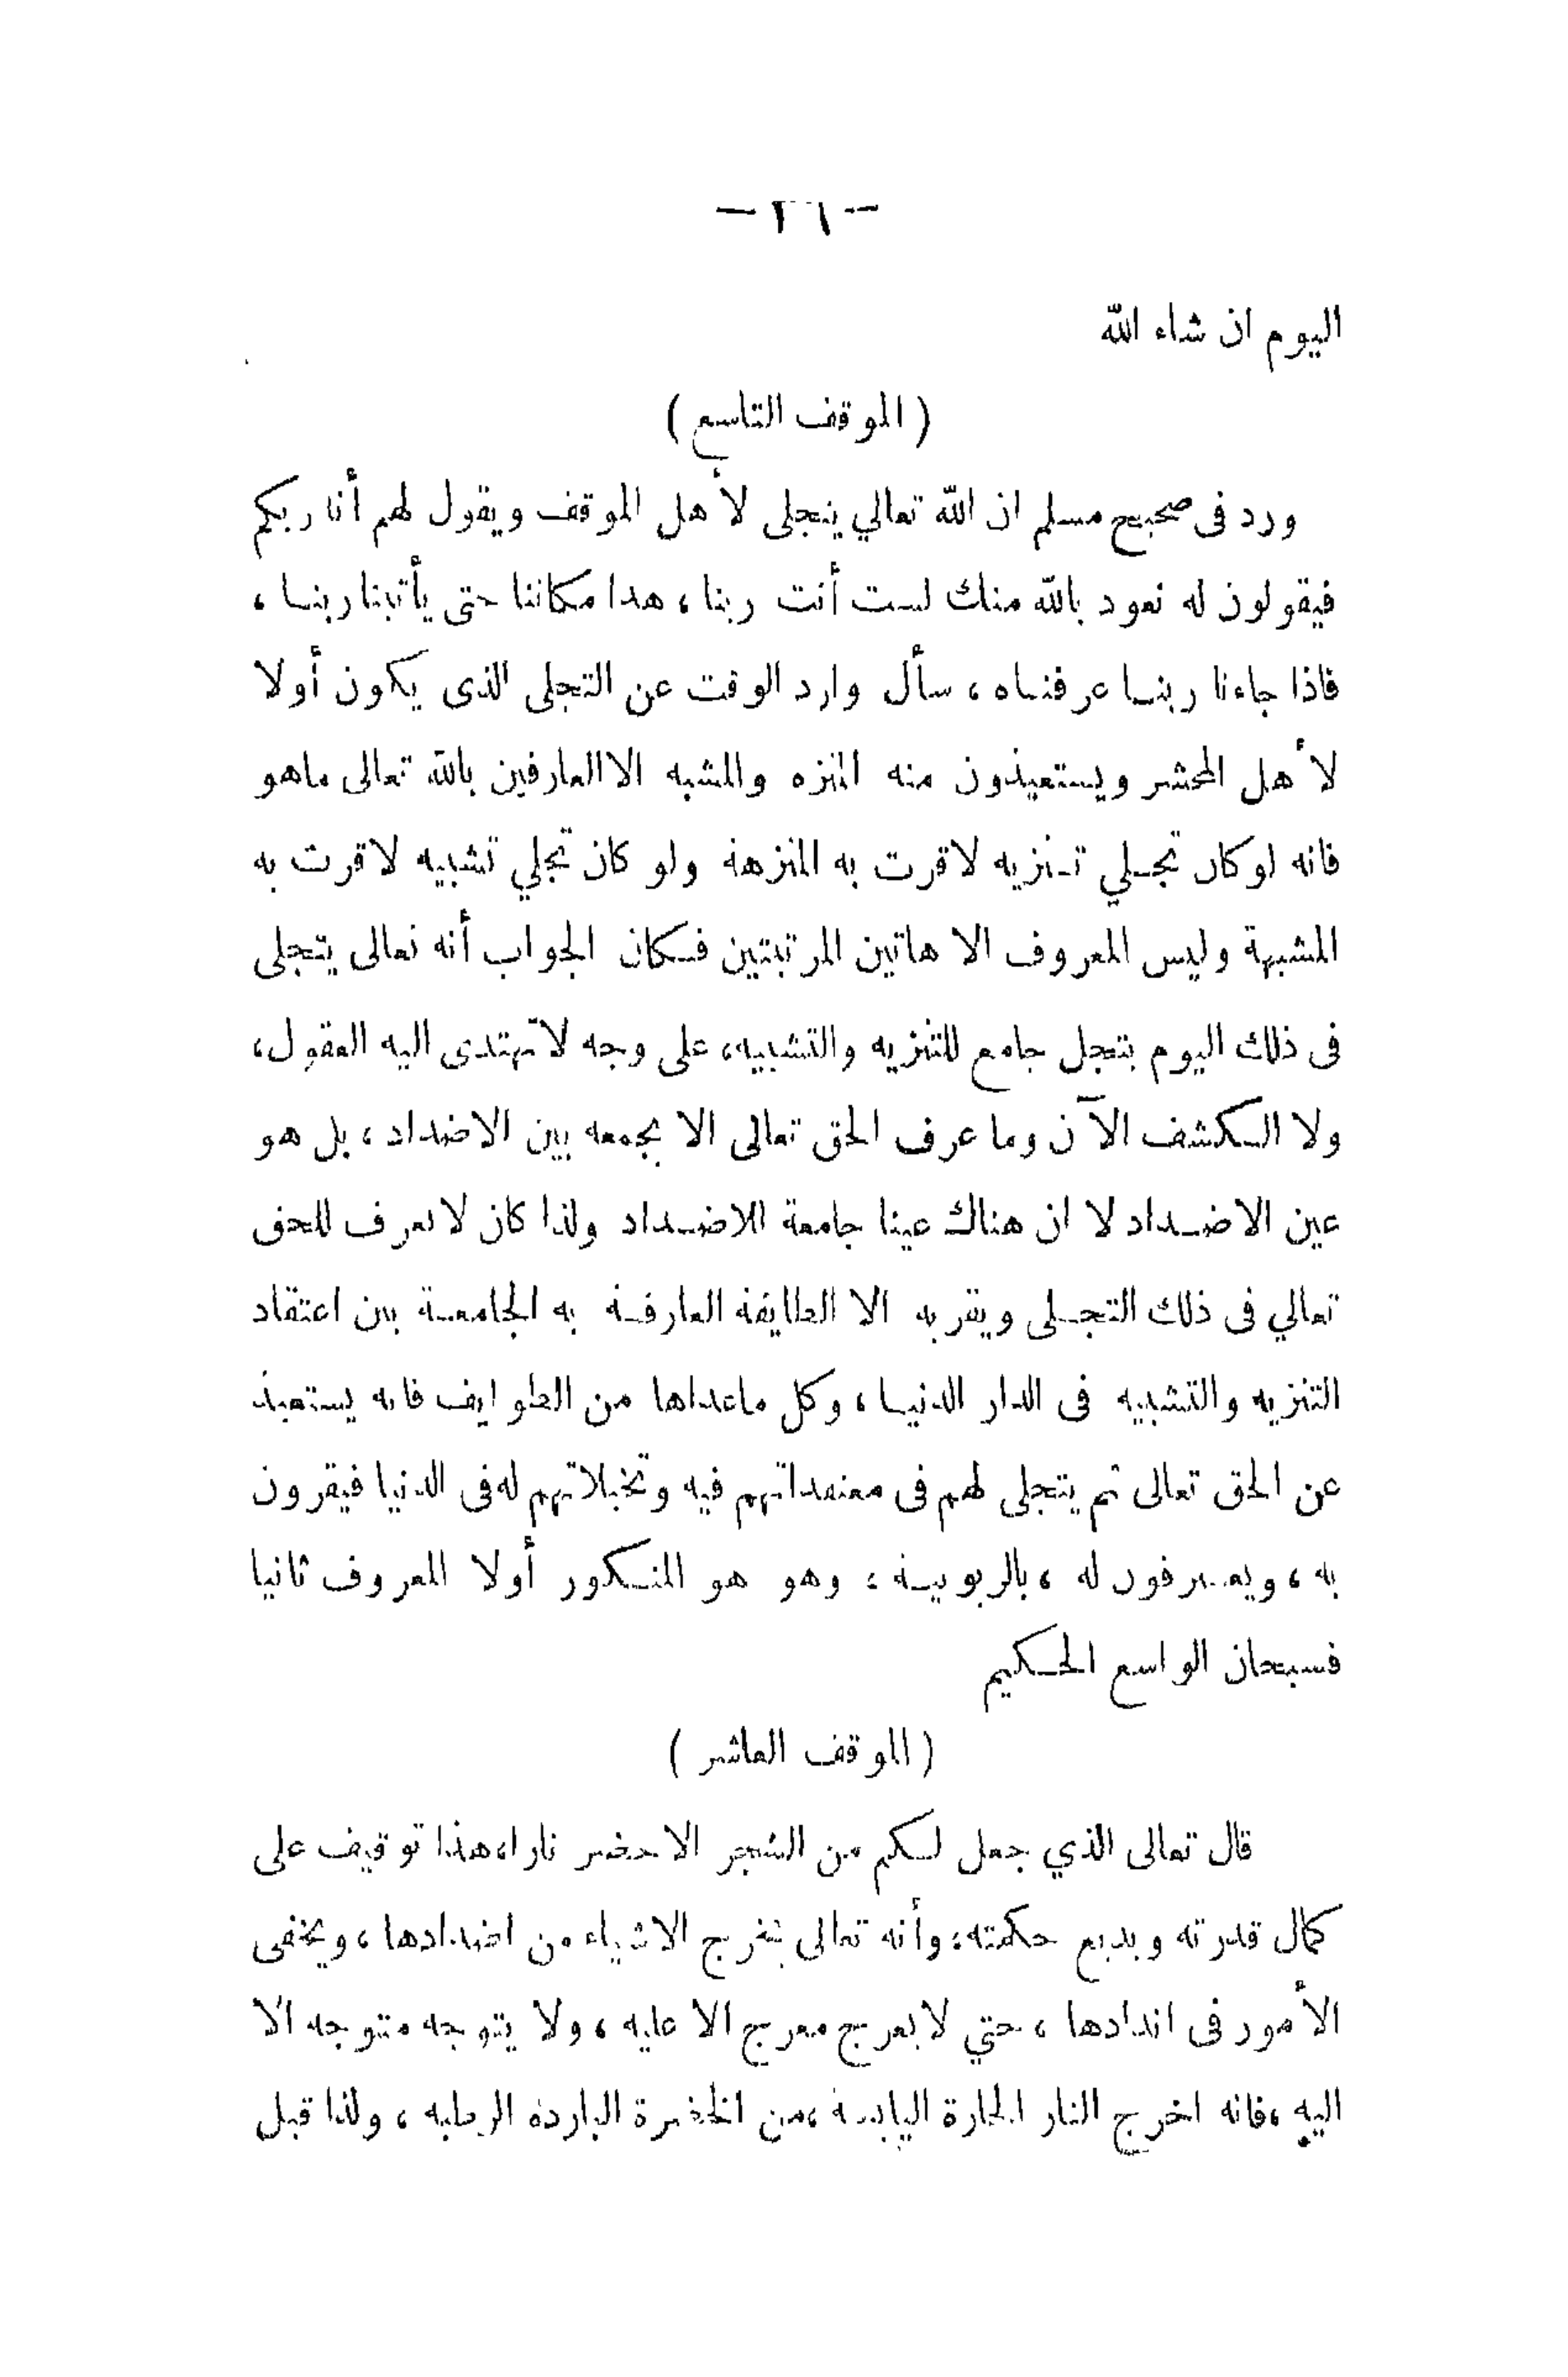 — ٢٦ —
اليوم ان شاء الله
( الموقف التاسع )
ورد فى صحيح مسلم ان الله تعالي يتجلى لأهل الموقف ويقول لهم أنا ربكم
فيقولون له نعوذ بالله منك لست أنت ربنا ، هذا مكاننا حتى يأتينا ربنا ،
فاذا جاءنا ربنا عرفناه ، سأل وارد الوقت عن التجلى الذى يكون أولا
لأهل المحشر ويستعيذون منه المنزه والمشبه الا العارفين بالله تعالى ماهو
فانه لو كان تجلي تنزيه لاقرت به المنزهة ولو كان تجلي تشبيه لاقرت به
المشبهة وليس المعروف الا هاتين المرتبتين فكان الجواب أنه تعالى يتجلى
فى ذلك اليوم بتجل جامع للتنزيه والتشبيه ، على وجه لا تهتدى اليه العقول ،
ولا الكشف الآن وما عرف الحق تعالى الا بجمعه بين الاضداد ، بل هو
عين الاضداد لا ان هناك عينا جامعة للاضداد ولذا كان لا يعرف للحق
تعالي فى ذلك التجلى ويقر به الا الطايفة العارفة به الجامعة بين اعتقاد
التنزيه والتشبيه فى الدار الدنيا ، وكل ماعداها من الطوايف فانه يستعيذ
عن الحق تعالى ثم يتجلى لهم فى معتقداتهم فيه وتخيلاتهم له فى الدنيا فيقرون
به ، ويعترفون له ، بالربوبية ، وهو هو المنكور أولا المعروف ثانيا
فسبحان الواسع الحكيم
( الموقف العاشر )
قال تعالى الذي جعل لكم من الشجر الاخضر نارا ، هذا توقيف على
كمال قدرته وبديع حكمته ، وأنه تعالى يخرج الاشياء من اضدادها ، ويخفى
الأمور فى اندادها ، حتي لا يعرج معرج الا عليه ، ولا يتوجه متوجه الا
اليه ، فانه اخرج النار الحارة اليابسة ، من الخضرة الباردة الرطبه ، ولذا قبل